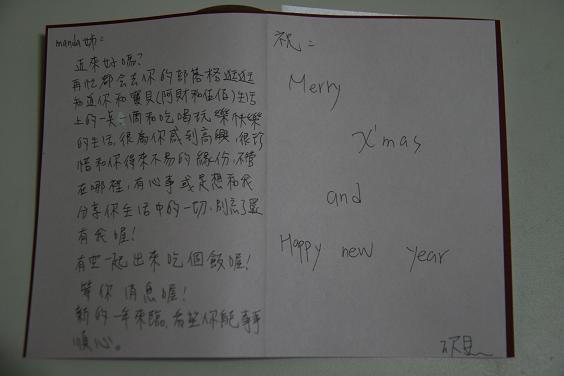 manda姊：
近來好嗎？
再忙都會去你的部落格逛逛
知道你和寶貝(阿財和伍佰)生活
上的一點一滴和吃喝玩樂快樂
的生活，很為你感到高興，很珍
惜和你得來不易的緣份，不管
在哪裡，有心事或是想和我
分享你生活中的一切，別忘了還
有我喔！
有空一起出來吃個飯喔！
等你消息喔！
新的一年來臨，希望你能事事
順心。
祝：
Merry
X'mas
and
Happy new year